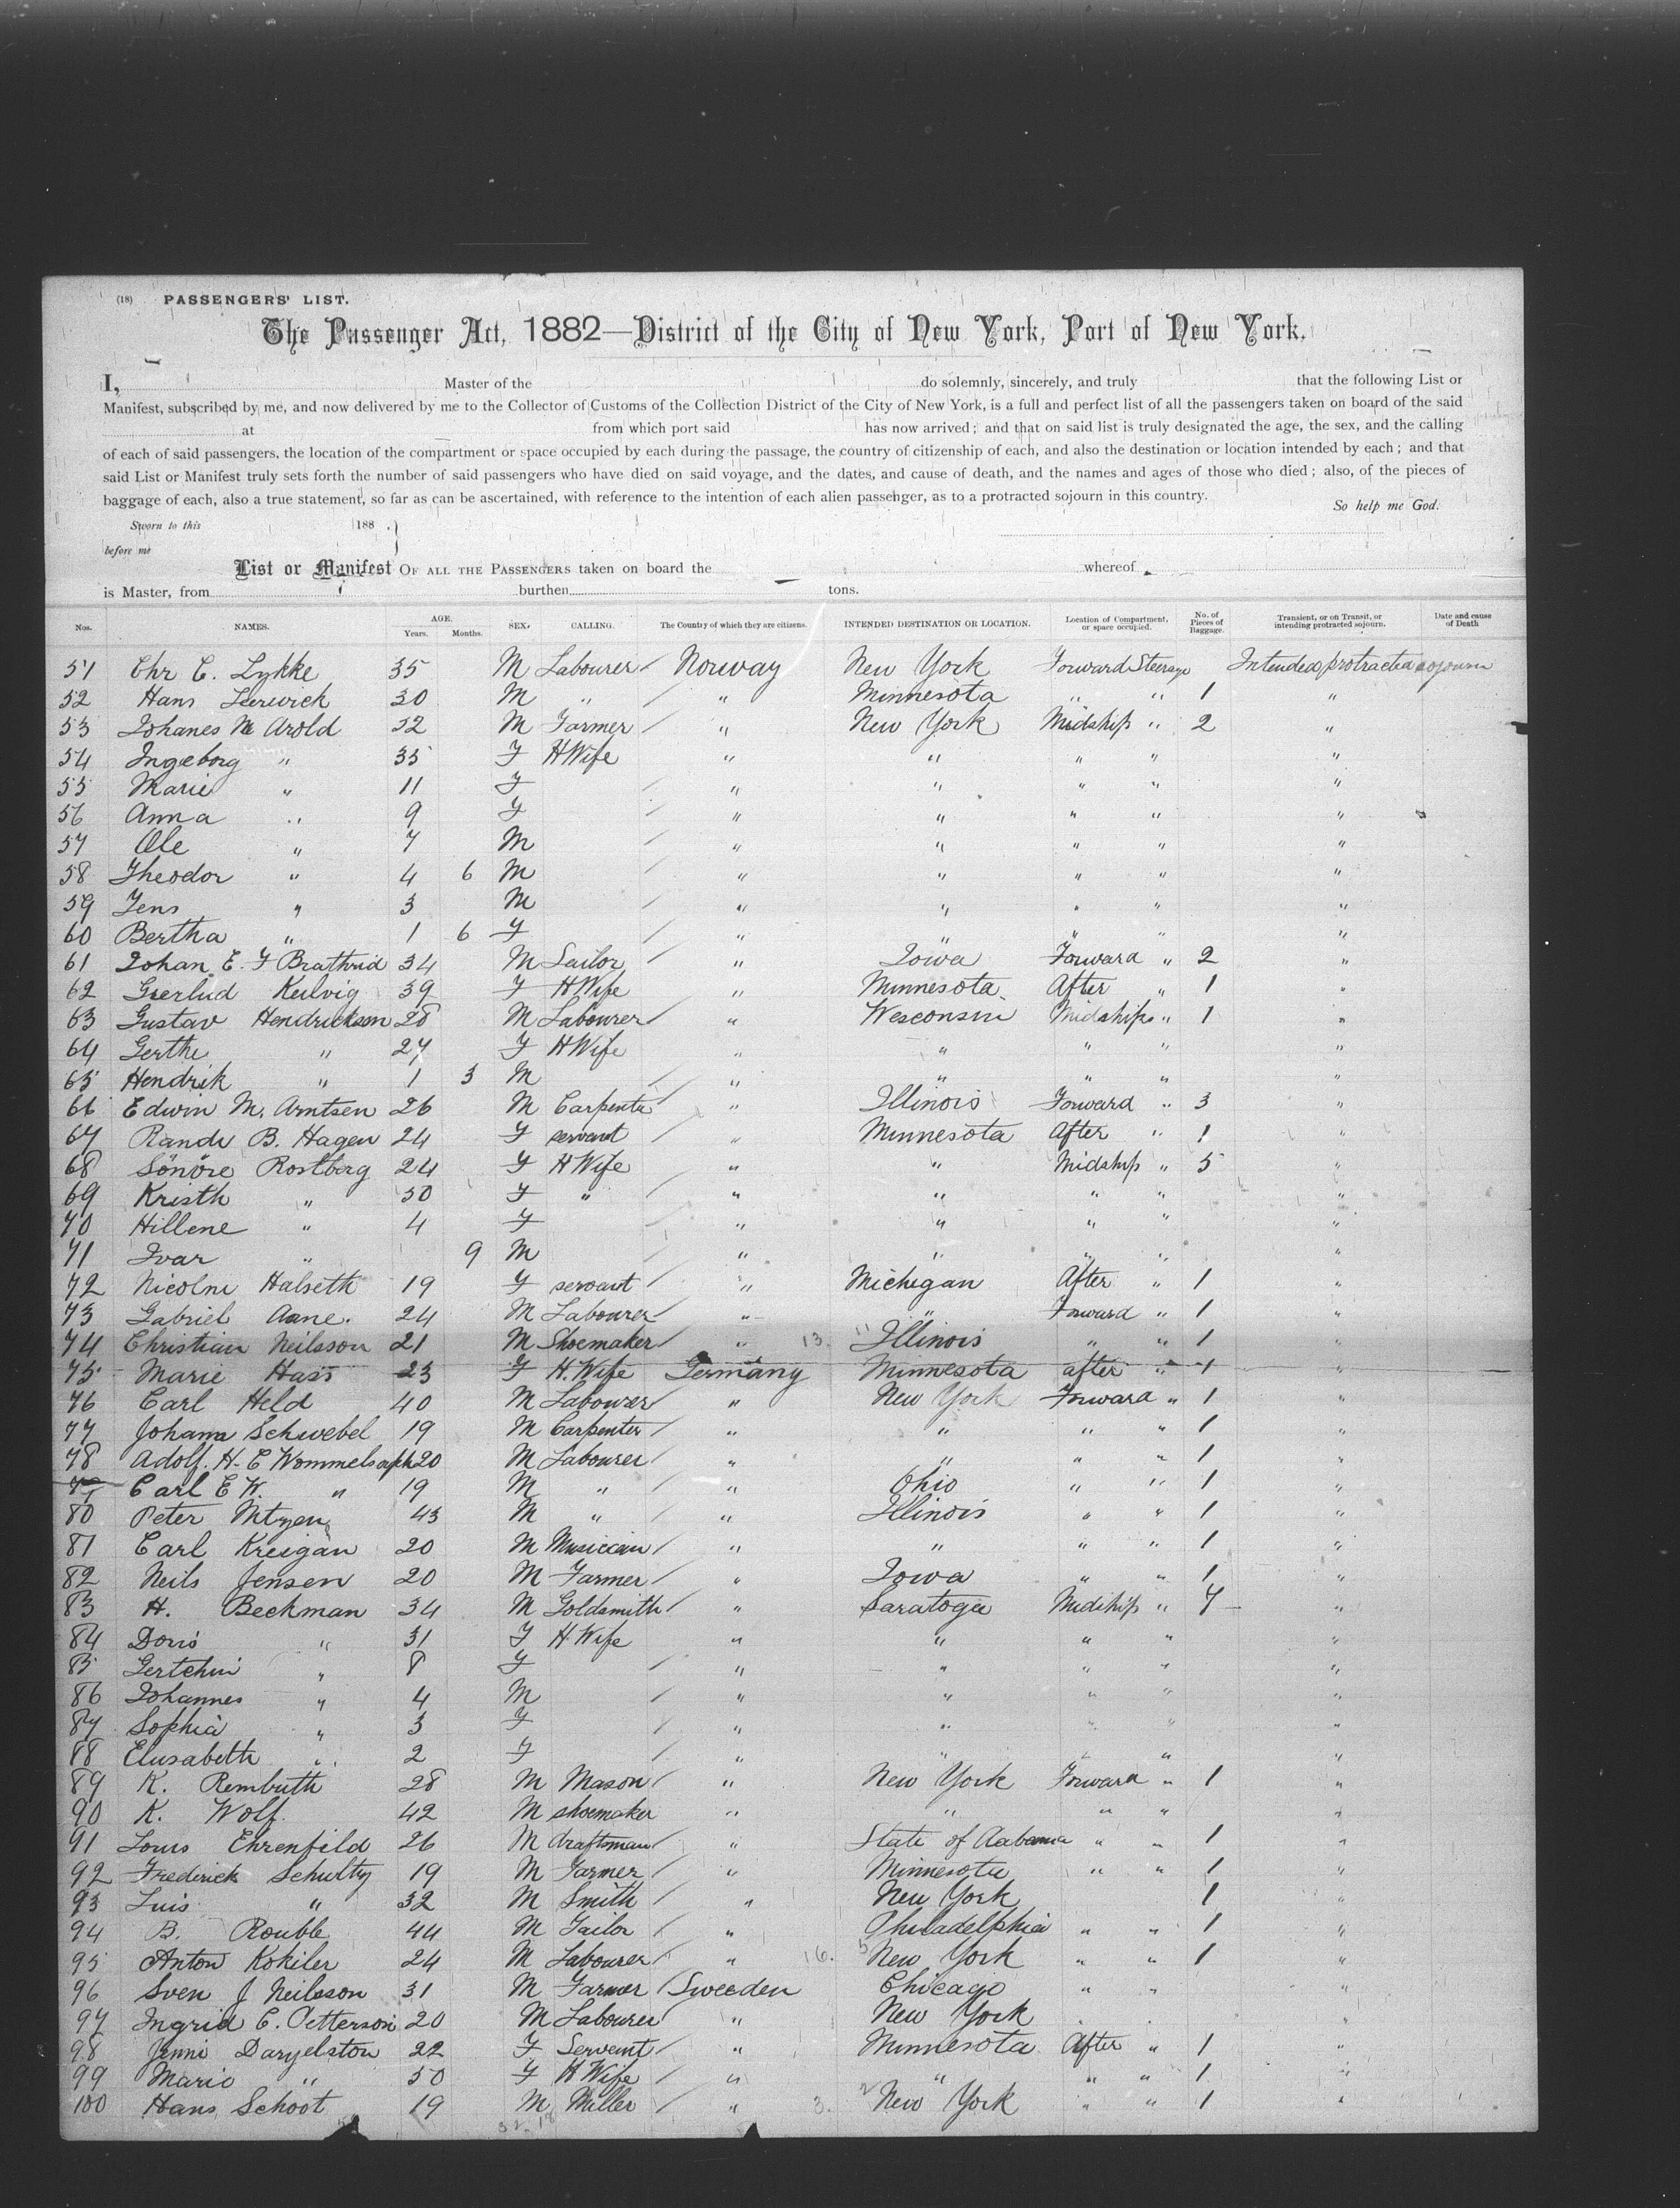 (18) PASSENGERS' LIST.
The Passenger Act, 1882—District of the City of New York, Port of New York.
I, Master of the do solemnly, sincerely, and truly that the following List or
Manifest, subscribed by me, and now delivered by me to the Collector of Customs of the Collection District of the City of New York, is a full and perfect list of all the passengers taken on board of the said
at from which port said has now arrived; and that on said list is truly designated the age, the sex, and the calling
of each of said passengers, the location of the compartment or space occupied by each during the passage, the country of citizenship of each, and also the destination or location intended by each; and that
said List or Manifest truly sets forth the number of said passengers who have died on said voyage, and the dates, and cause of death, and the names and ages of those who died; also, of the pieces of
baggage of each, also a true statement, so far as can be ascertained, with reference to the intention of each alien passenger, as to a protracted sojourn in this country.
So help me God.
Sworn to this 188 .
before me
List or Manifest OF ALL THE PASSENGERS taken on board the whereof
is Master, from burthen tons.
Nos. NAMES. AGE. Years. Months. SEX. CALLING. The Country of which they are citizens. INTENDED DESTINATION OR LOCATION. Location of Compartment, or space occupied. No. of Pieces of Baggage. Transient, or on Transit, or intending protracted sojourn. Date and cause of Death
51 Chr C. Lykke 35 M Labourer Norway New York Forward Steerage Intended protracted sojourn
52 Hans Lerwick 30 M " " Minnesota " " 1 "
53 Johanes M Arold 32 M Farmer " New York Midship " 2 "
54 Ingeborg " 35 F H Wife " " " " "
55 Marie " 11 F " " " " "
56 Anna " 9 F " " " " "
57 Ole " 7 M " " " " "
58 Theodor " 4 6 M " " " " "
59 Jens " 3 M " " " " "
60 Bertha " 1 6 F " " " " "
61 Johan E. F Brathrid 34 M Sailor " Iowa Forward " 2 "
62 Gierlud Kulvig 39 F H Wife " Minnesota After " 1 "
63 Gustav Hendrickson 28 M Labourer " Wesconsin Midships " 1 "
64 Gerthe " 27 F H Wife " " " " "
65 Hendrik " 1 3 M " " " " "
66 Edwin M. Arntsen 26 M Carpenter " Illinois Forward " 3 "
67 Randi B. Hagen 24 F servant " Minnesota After " 1 "
68 Sönöre Rostberg 24 F H Wife " " Midship " 5 "
69 Kristh " 50 F " " " " " "
70 Hillene " 4 F " " " " "
71 Ivar " 9 M " " " " "
72 Nicolni Halseth 19 F servant " Michigan After " 1 "
73 Gabriel Aane. 24 M Labourer " " Forward " 1 "
74 Christian Neilsson 21 M Shoemaker " 13. 11 Illinois " " 1 "
75 Marie Hass 23 F H. Wife Germany Minnesota after " 1 "
76 Carl Held 40 M Labourer " New York Forward " 1 "
77 Johann Schwebel 19 M Carpenter " " " " 1 "
78 Adolf. H. C Wommelsdorph 20 M Labourer " " " " 1 "
79 Carl E W. " 19 M " " Ohio " " 1 "
80 Peter Mtzen 43 M " " Illinois " " 1 "
81 Carl Kreigan 20 M Musiccian " " " " 1 "
82 Neils Jensen 20 M Farmer " Iowa " " 1 "
83 H. Beckman 34 M Goldsmith " Saratoga Midship " 7 "
84 Doris " 31 F H. Wife " " " " "
85 Gertchin " 8 F " " " " "
86 Johannes " 4 M " " " " "
87 Sophia " 3 F " " " " "
88 Elusabeth " 2 F " " " " "
89 K. Rembuth 28 M Mason " New York Forward " 1 "
90 K. Wolf. 42 M shoemaker " " " " "
91 Louis Ehrenfild 26 M draftsman " State of Aabama " " 1 "
92 Frederick Schulty 19 M Farmer " Minnesota " " 1 "
93 Luis " 32 M Smith " New York 1 "
94 B. Rouble 44 M Tailor " Philadelphia " " 1 "
95 Anton Kokiler 24 M Labourer " 16. 5 New York " " 1 "
96 Sven J Neilsson 31 M Farmer Sweeden Chicago " " "
97 Ingrid C. Petterson 20 M Labourer " New York " " "
98 Jenni Daryelston 22 F Servant " Minnesota After " 1 "
99 Mario " 50 F H Wife " " " " 1 "
100 Hans Schoot 19 M Miller " 3. 2 New York " " 1 "